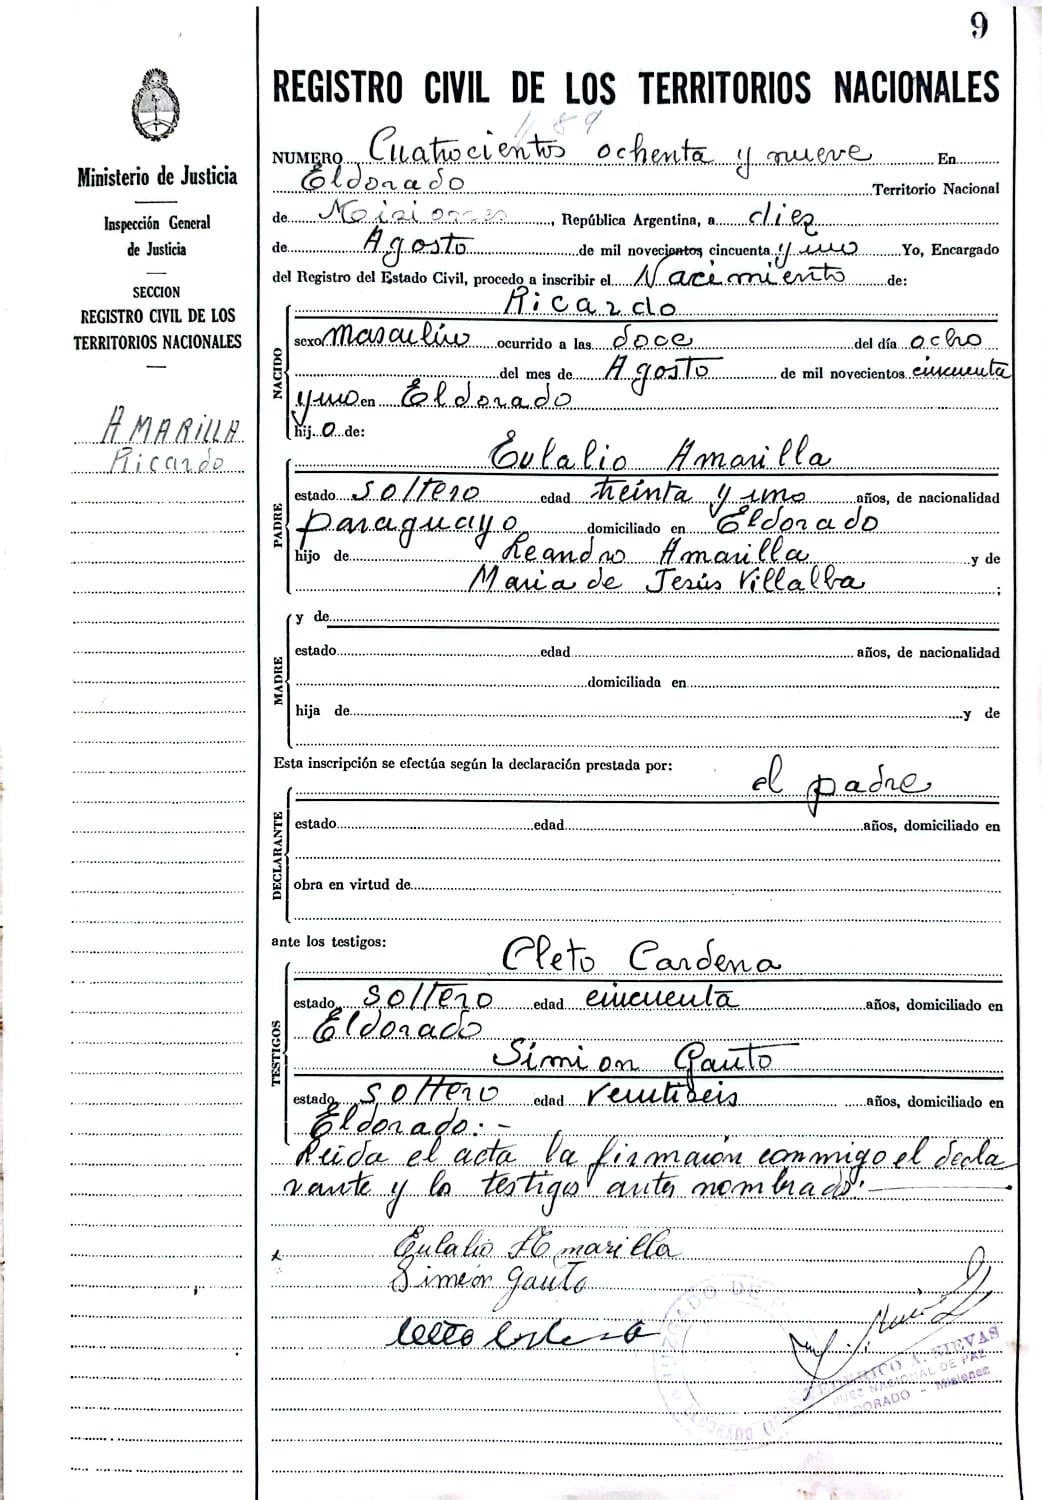 9
REGISTRO CIVIL DE LOS TERRITORIOS NACIONALES
489
Ministerio de Justicia
Inspección General
de Justicia
SECCION
REGISTRO CIVIL DE LOS
TERRITORIOS NACIONALES
AMARILLA
Ricardo
NUMERO Cuatrocientos ochenta y nueve En
Eldorado Territorio Nacional
de Misiones, República Argentina, a diez
de Agosto de mil novecientos cincuenta y uno Yo, Encargado
del Registro del Estado Civil, procedo a inscribir el Nacimiento de:
NACIDO
Ricardo
sexo Masculino ocurrido a las doce del día ocho
del mes de Agosto de mil novecientos cincuenta
y uno en Eldorado
hijo de:
PADRE
Eulalio Amarilla
estado soltero edad treinta y uno años, de nacionalidad
paraguayo domiciliado en Eldorado
hijo de Leandro Amarilla y de
Maria de Jesús Villalba ;
MADRE
y de
estado edad años, de nacionalidad
domiciliada en
hija de y de
Esta inscripción se efectúa según la declaración prestada por:
el padre
DECLARANTE
estado edad años, domiciliado en
obra en virtud de
ante los testigos:
TESTIGOS
Cleto Cardena
estado soltero edad cincuenta años, domiciliado en
Eldorado
Simion Gauto
estado soltero edad veintiseis años, domiciliado en
Eldorado:-
Leida el acta la firmaron conmigo el decla
rante y los testigos antes nombrados.
Eulalio Amarilla
Simeón Gauto
JUZGADO DE
ELDORADO
A. NIEVAS
JUEZ NACIONAL DE PAZ
ELDORADO - Misiones